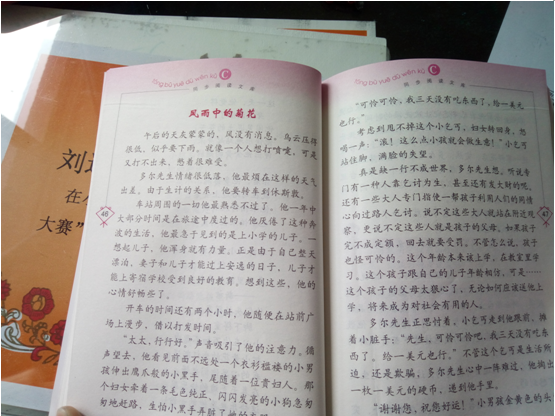 刘
在
大赛”
tóng bù yuè dù wén kù
同步阅读文库
风雨中的菊花
午后的天灰蒙蒙的，风没有消息。乌云压得
很低，似乎要下雨。就像一个人想打喷嚏，可是
又打不出来，憋着很难受。
多尔先生情绪很低落。他最烦在这样的天气
出差。由于生计的关系，他要转车到休斯敦。
车站周围的一切他最熟悉不过了。他一年中
大部分时间是在旅途中度过的。他厌倦了这种奔
波的生活。他最急于见到的是上小学的儿子。一
想起儿子，他浑身就有力量。正是由于自己整天
漂泊，妻子和儿子才能过上安逸的日子，儿子才
能上寄宿学校受到良好的教育。想到这些，他的
心情好畅些了。
开车的时间还有两个小时，他随便在站前广
场上漫步，借以打发时间。
“太太，行行好。”声音吸引了他的注意力。循
声望去，他看见前面不远处一个衣衫褴褛的小男
孩伸出鹰爪般的小黑手，尾随着一位贵妇人。那
个妇女牵着一条毛色纯正、闪闪发亮的小狗急匆
匆地赶路，生怕小黑手弄脏了她的
46
tóng bù yuè dù wén kù
同步阅读文库
“可怜可怜，我三天没有吃东西了。给一美元
也行。”
考虑到甩不掉这个小乞丐，妇女转回身，怒
喝一声：“滚！这么点小孩就会做生意！”小乞丐
站住脚，满脸的失望。
真是缺一行不成世界，多尔先生想。听说专
门有一种人靠乞讨为生，甚至还有发大财的呢。
还有一些大人专门指使一帮孩子利用人们的同情
心向过路人乞讨。说不定这些大人就站在附近观
察，更说不定这些人就是孩子的父母。如果孩子
完不成定额，回去就要受罚。不管怎么说，孩子
也怪可怜的。这个年龄本来该上学，在教室里学
习。这个孩子跟自己的儿子年龄相仿，可是——
这个孩子的父母太狠心了，无论如何应该送他上
学，将来成为对社会有用的人。
多尔先生正思忖着，小乞丐走到他跟前，摊
着小脏手：“先生，可怜可怜吧，我三天没有吃东
西了。给一美元也行。”不管这个乞丐是生活所
迫，还是欺骗，多尔先生心中一阵难过，他掏出
一枚一美元的硬币，递到他手里。
“谢谢您，祝您好运！”小男孩金黄色的头
47